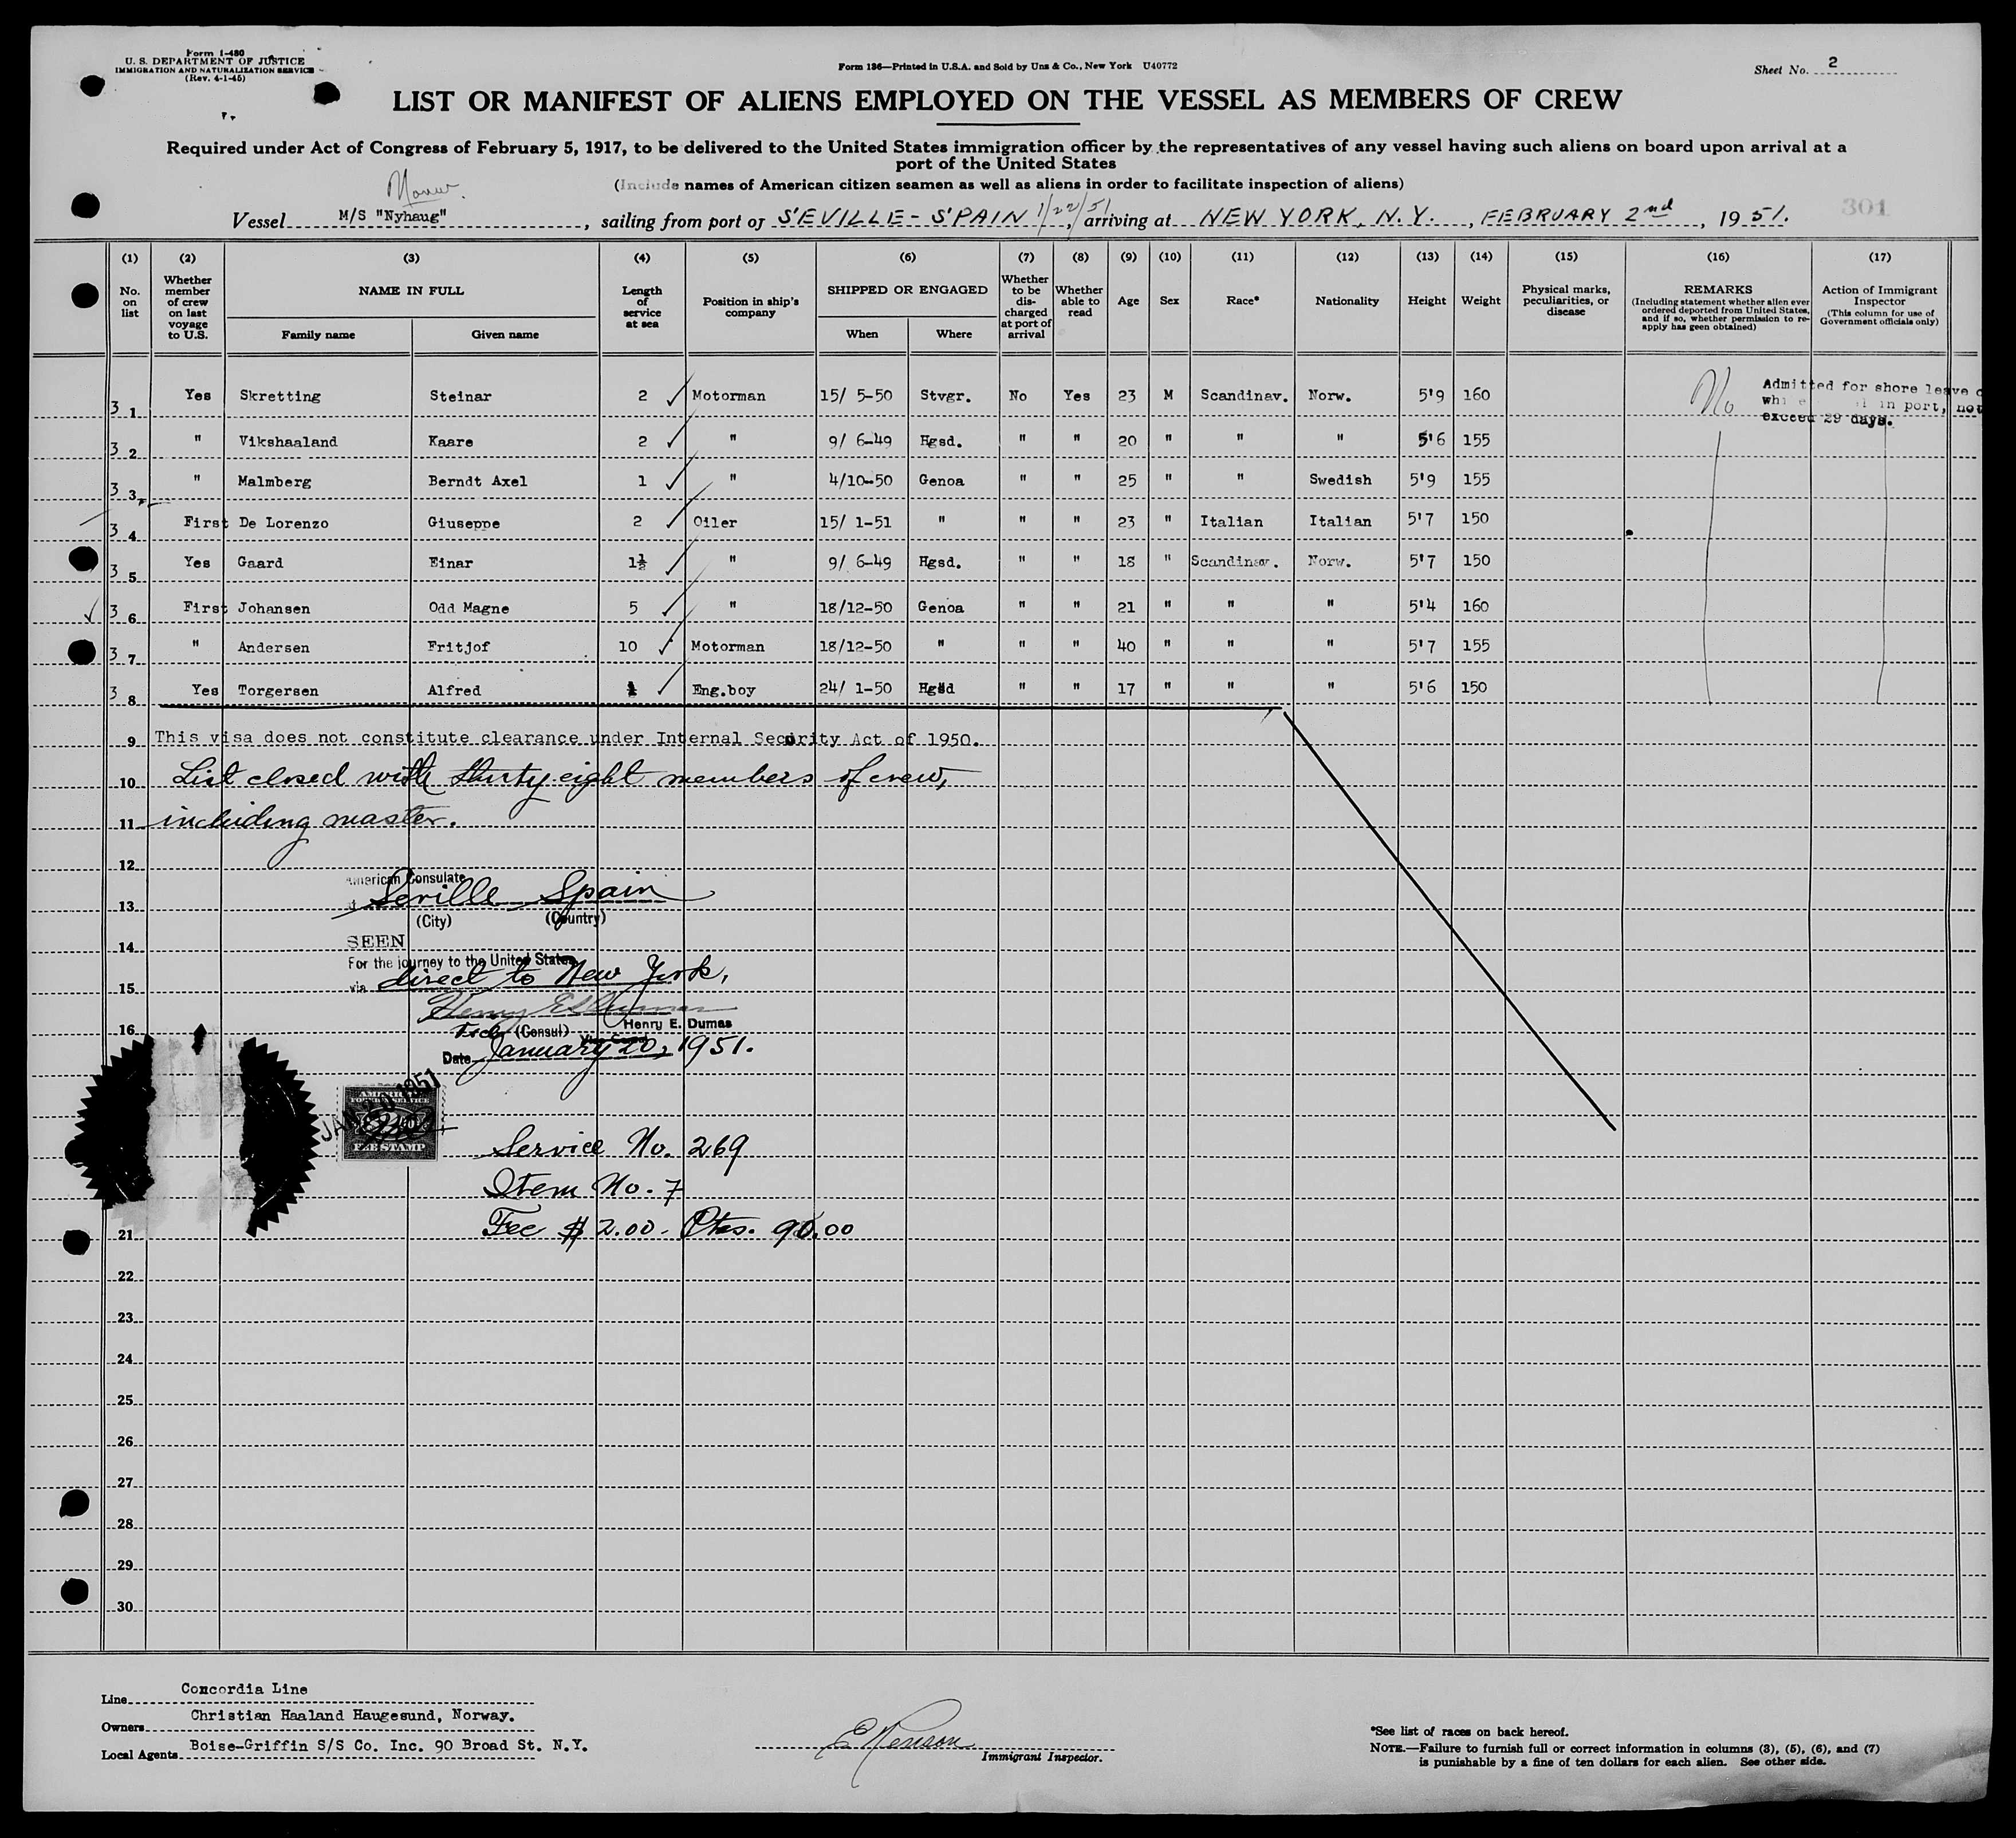 Form I-480
U. S. DEPARTMENT OF JUSTICE
IMMIGRATION AND NATURALIZATION SERVICE
(Rev. 4-1-45)
Form 136—Printed in U.S.A. and Sold by Unz & Co., New York U40772
Sheet No. 2
LIST OR MANIFEST OF ALIENS EMPLOYED ON THE VESSEL AS MEMBERS OF CREW
Required under Act of Congress of February 5, 1917, to be delivered to the United States immigration officer by the representatives of any vessel having such aliens on board upon arrival at a
port of the United States
(Include names of American citizen seamen as well as aliens in order to facilitate inspection of aliens)
Vessel M/S "Nyhaug", sailing from port of SEVILLE - SPAIN 1/22/51, arriving at NEW YORK, N.Y., FEBRUARY 2nd, 1951.
301
(1) (2) (3) (4) (5) (6) (7) (8) (9) (10) (11) (12) (13) (14) (15) (16) (17)
No. on list
Whether member of crew on last voyage to U.S.
NAME IN FULL
Family name Given name
Length of service at sea
Position in ship's company
SHIPPED OR ENGAGED
When Where
Whether to be discharged at port of arrival
Whether able to read
Age Sex Race* Nationality Height Weight
Physical marks, peculiarities, or disease
REMARKS
(Including statement whether alien ever ordered deported from United States, and if so, whether permission to re-apply has geen obtained)
Action of Immigrant Inspector
(This column for use of Government officials only)
3 1 Yes Skretting Steinar 2 ✓ Motorman 15/ 5-50 Stvgr. No Yes 23 M Scandinav. Norw. 5'9 160 No
Admitted for shore leave
in port, not
exceed 29 days.
3 2 " Vikshaaland Kaare 2 ✓ " 9/ 6-49 Hgsd. " " 20 " " " 5'6 155
3 3 " Malmberg Berndt Axel 1 ✓ " 4/10-50 Genoa " " 25 " " Swedish 5'9 155
3 4 First De Lorenzo Giuseppe 2 ✓ Oiler 15/ 1-51 " " " 23 " Italian Italian 5'7 150
3 5 Yes Gaard Einar 1½ ✓ " 9/ 6-49 Hgsd. " " 18 " Scandinav. Norw. 5'7 150
✓ 3 6 First Johansen Odd Magne 5 ✓ " 18/12-50 Genoa " " 21 " " " 5'4 160
3 7 " Andersen Fritjof 10 ✓ Motorman 18/12-50 " " " 40 " " " 5'7 155
3 8 Yes Torgersen Alfred ✓ Eng.boy 24/ 1-50 Hgsd " " 17 " " " 5'6 150
9 This visa does not constitute clearance under Internal Security Act of 1950.
10 List closed with thirty-eight members of crew,
11 including master.
12
American Consulate
13 Seville Spain
(City) (Country)
SEEN
14
For the journey to the United States
15 via direct to New York,
Henry E. Dumas
16 (Consul) Henry E. Dumas
Vice Consul
Date January 20, 1951.
JAN 20 1951
AMERICAN
FOREIGN SERVICE
FEE STAMP
Service No. 269
Item No. 7
21 Fee $ 2.00 - Ptas. 90.00
22
23
24
25
26
27
28
29
30
Line Concordia Line
Owners Christian Haaland Haugesund, Norway.
Local Agents Boise-Griffin S/S Co. Inc. 90 Broad St. N.Y.
Immigrant Inspector.
*See list of races on back hereof.
NOTE.—Failure to furnish full or correct information in columns (3), (5), (6), and (7)
is punishable by a fine of ten dollars for each alien. See other side.